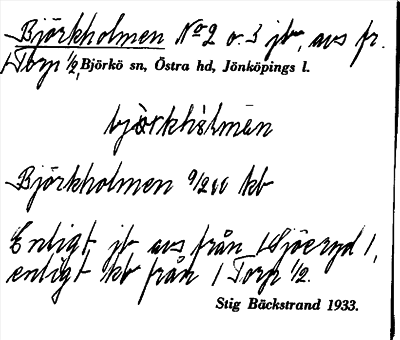 Björkholmen No 2 o. 3 jb, avs fr.
1 Torp 1/2, Björkö sn, Östra hd, Jönköpings l.
björkhòlmän
Björkholmen kb
Enligt jb avs från 1 Sjöeryd 1,
enligt kb från 1 Torp 1/2.
Stig Bäckstrand 1933.